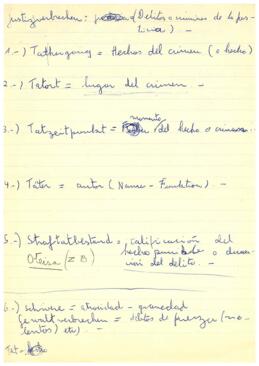 justizverbrechen: (Delitos o crimenes de la jus-
ticia) -
1.-) Tathergang = Hechos del crimen (o hecho)
2.-) Tatort = lugar del crimen. -
momento
3.-) Tatzeitpunkt = del hecho o crimen -
4.-) Täter = autor (Name - Funktion). -
5.-) Straftatbestand = calificación del
Oteiza (z B) hecho punible o
ción del delito. -
6.-) schwere = atrocidad - gravedad
Gewaltverbrechen = delitos de fuerza (vio-
lentos) etc) -
Tat =